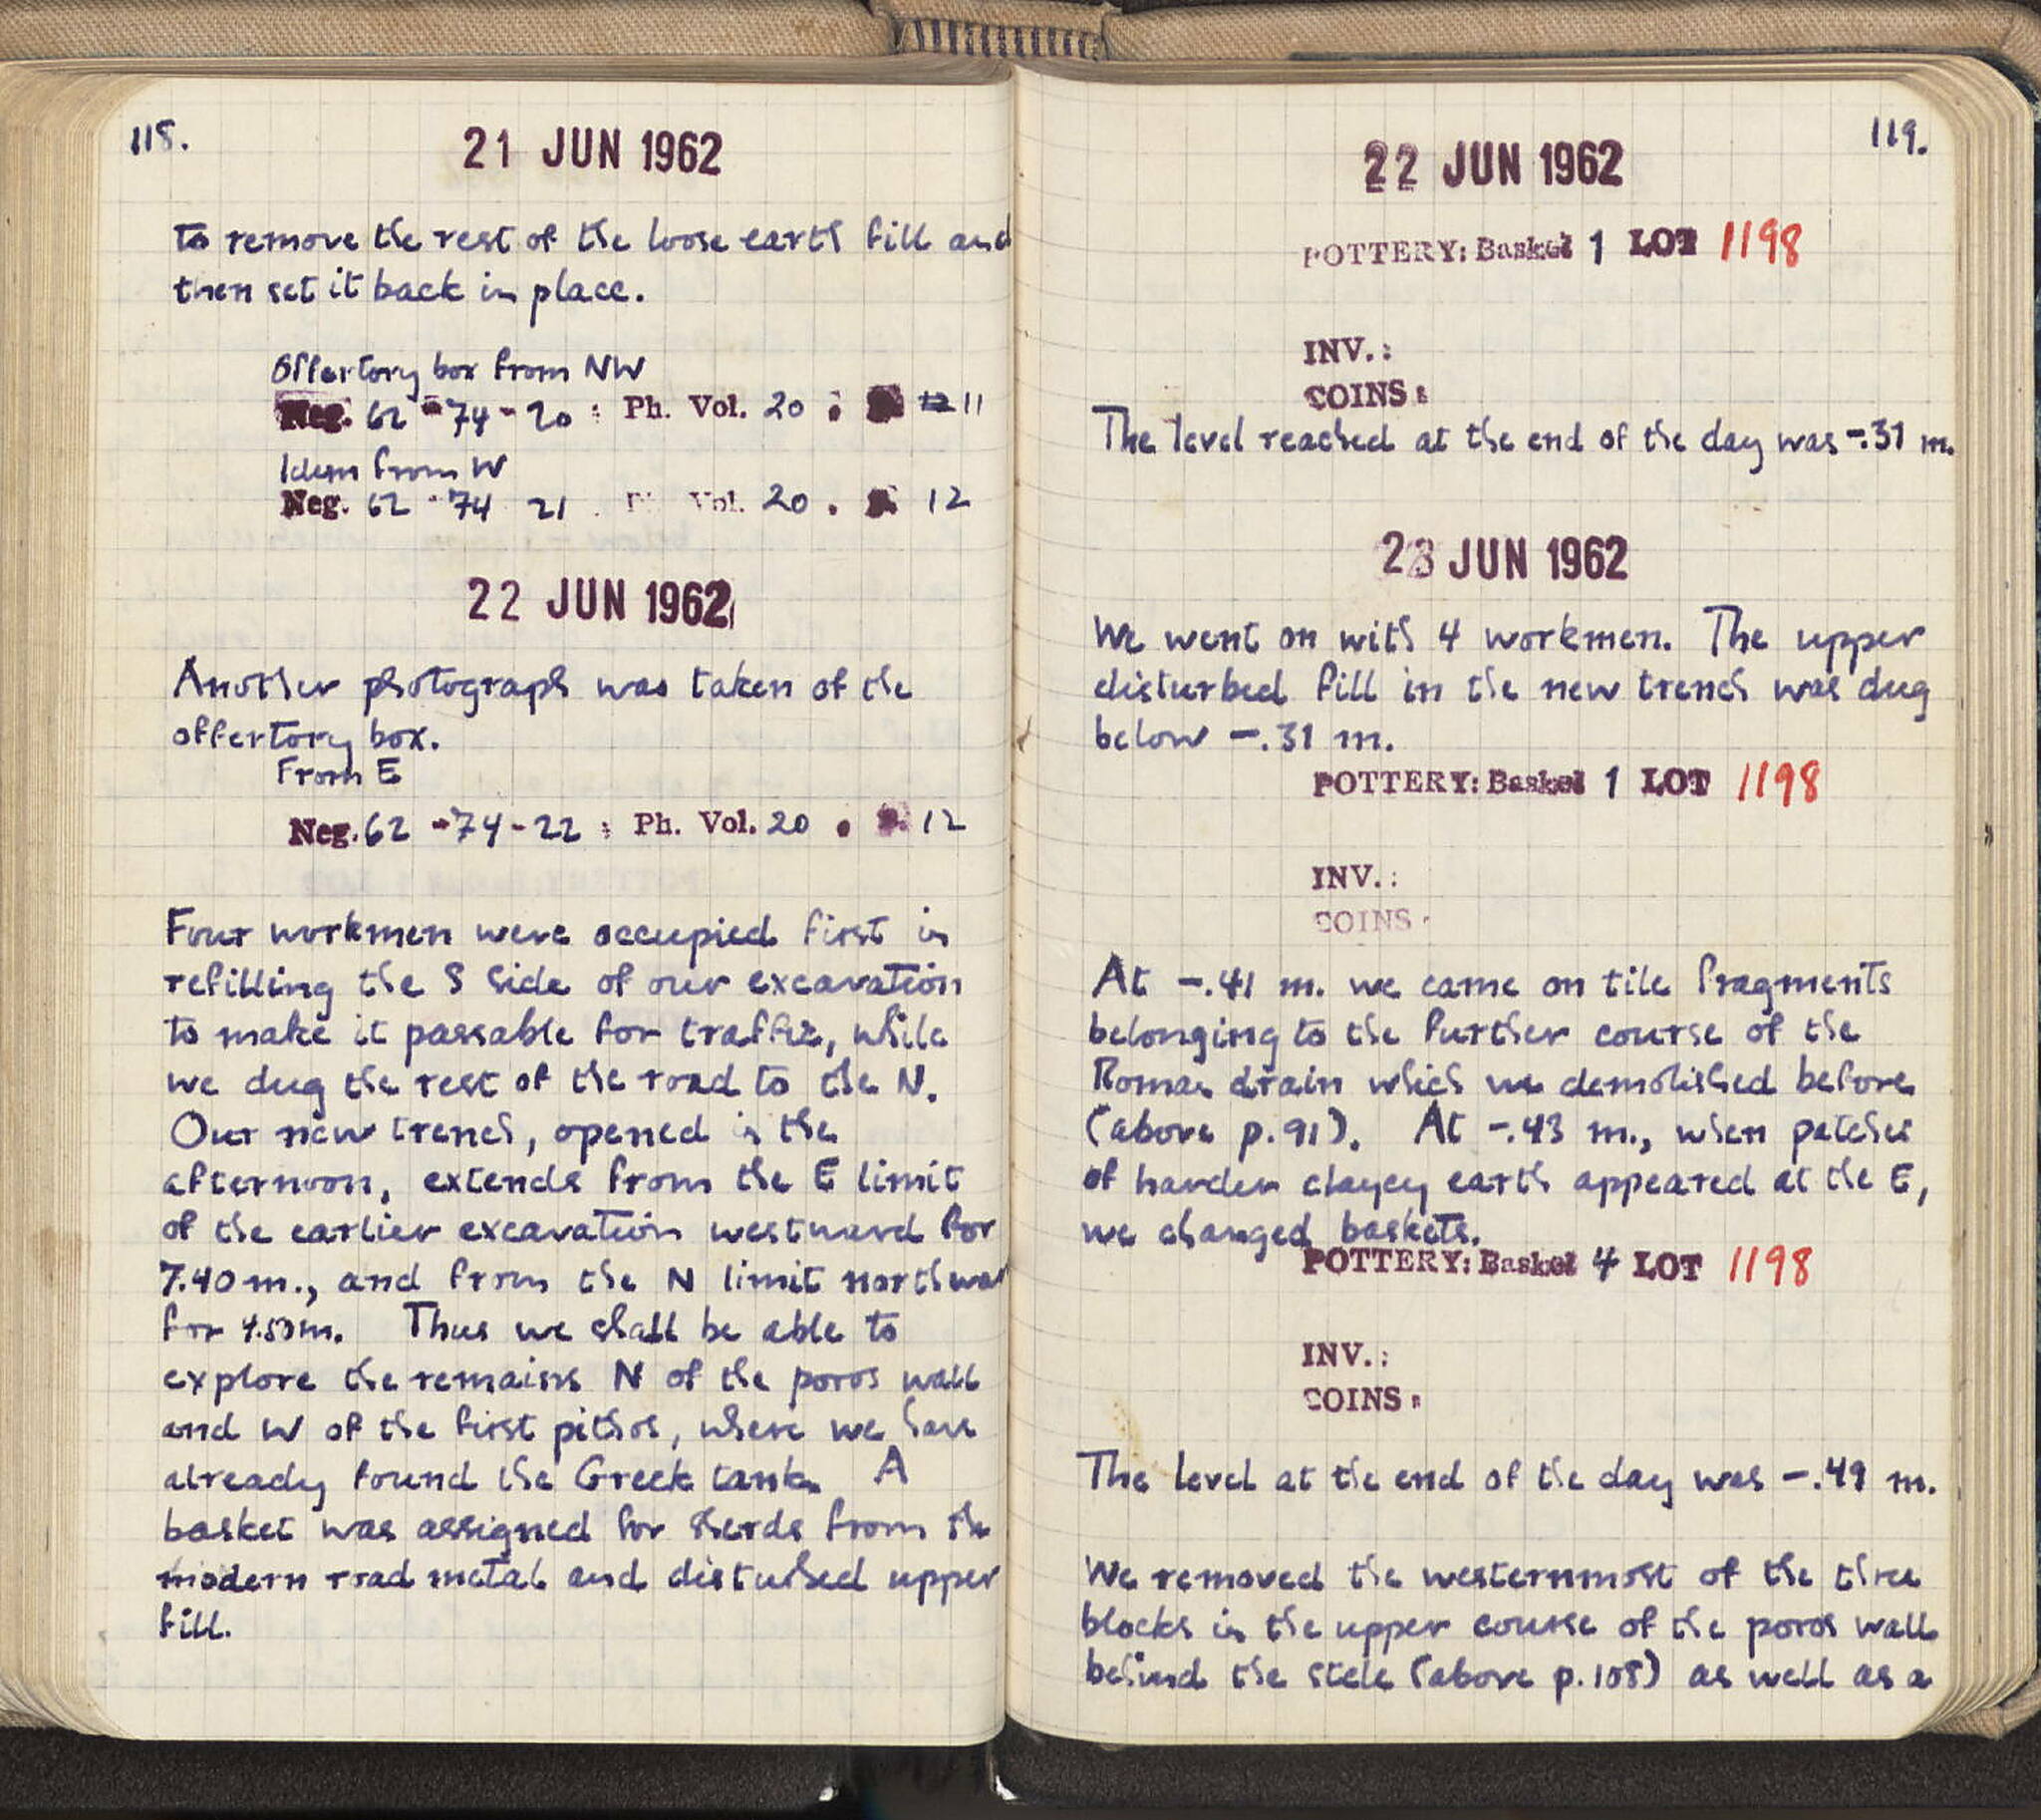 118.
21 JUN 1962
to remove the rest of the loose earth fill and
then set it back in place.
Offertory box from NW
Neg. 62 - 74 - 20 : Ph. Vol. 20 : 11
Idem from W
Neg. 62 - 74 21 Vol. 20 . 12
22 JUN 1962
Another photograph was taken of the
offertory box.
From E
Neg. 62 - 74 - 22 : Ph. Vol. 20 . 12
Four workmen were occupied first in
refilling the S side of our excavation
to make it passable for traffic, while
we dug the rest of the road to the N.
Our new trench, opened in the
afternoon, extends from the E limit
of the earlier excavation westward for
7.40 m., and from the N limit northwar
for 4.50 m. Thus we shall be able to
explore the remains N of the poros wall
and W of the first pithos, where we have
already found the Greek tank. A
basket was assigned for sherds from the
modern road metal and disturbed upper
fill.
119.
22 JUN 1962
POTTERY: Basket 1 LOT 1198
INV.:
COINS:
The level reached at the end of the day was -.31 m.
23 JUN 1962
We went on with 4 workmen. The upper
disturbed fill in the new trench was dug
below -.31 m.
POTTERY: Basket 1 LOT 1198
INV.:
COINS:
At -.41 m. we came on tile fragments
belonging to the further course of the
Roman drain which we demolished before
(above p.91). At -.43 m., when patches
of harder clayey earth appeared at the E,
we changed baskets.
POTTERY: Basket 4 LOT 1198
INV.:
COINS:
The level at the end of the day was -.49 m.
We removed the westernmost of the three
blocks in the upper course of the poros wall
behind the stele (above p.108) as well as a